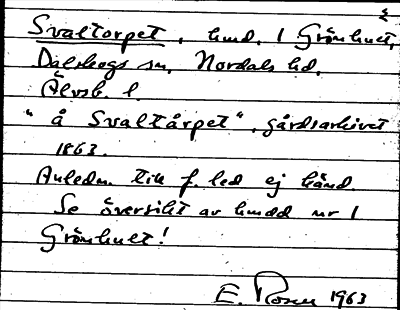 Svaltorpet, hmd. 1 Grönhult,
Dalskogs sn, Nordals hd.
Älvsb. l.
"å Svaltårpet", gårdsarkivet
1863.
Anledn. till f. led ej känd.
Se översikt av hmdd nr 1
Grönhult!
E. Rosen 1963